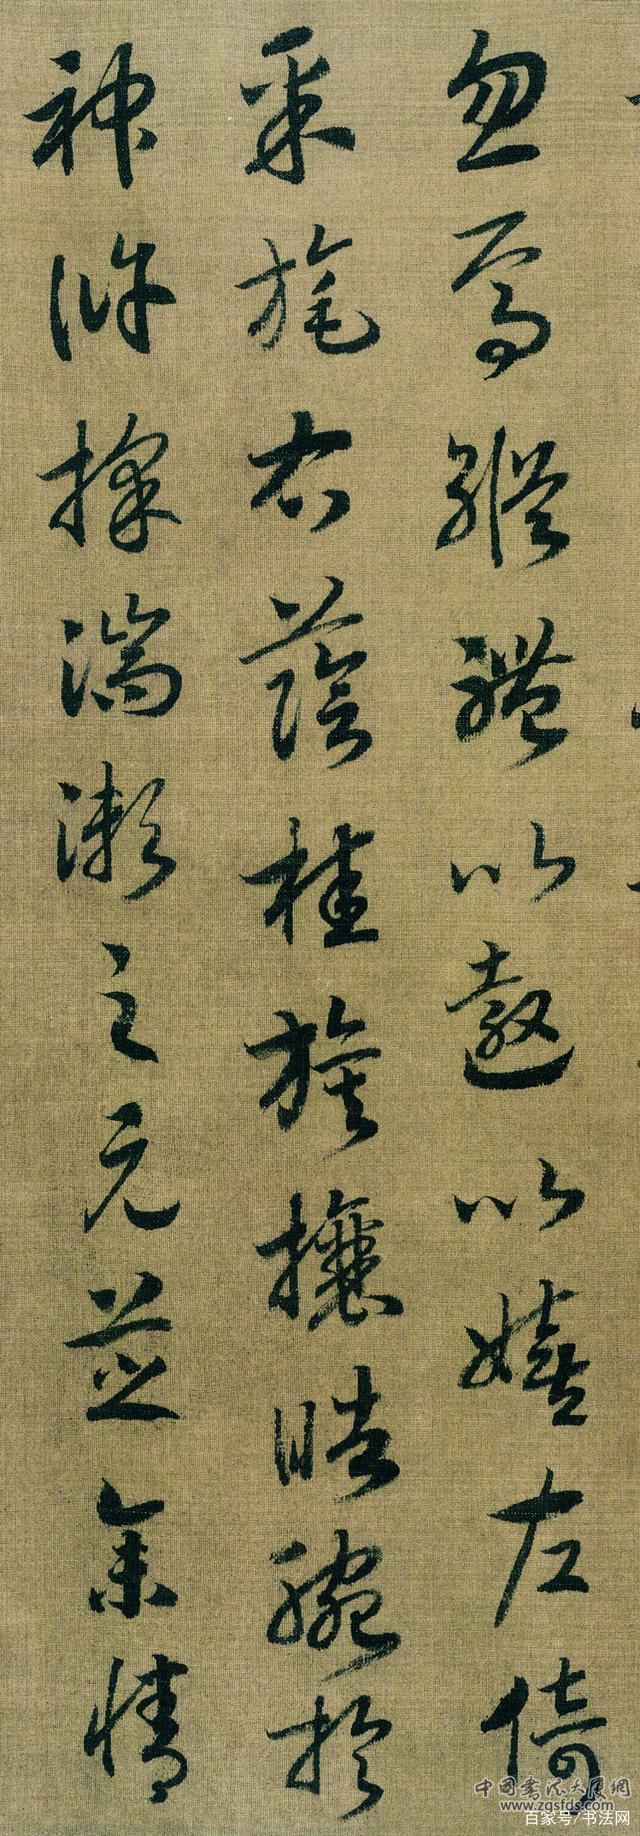 忽焉縱體以遨以嬉左倚
采旄右蔭桂旗攘皓腕於
神滸採湍瀨之元芝余情
中国书法大展网
www.zgsfds.com
百家号/书法网